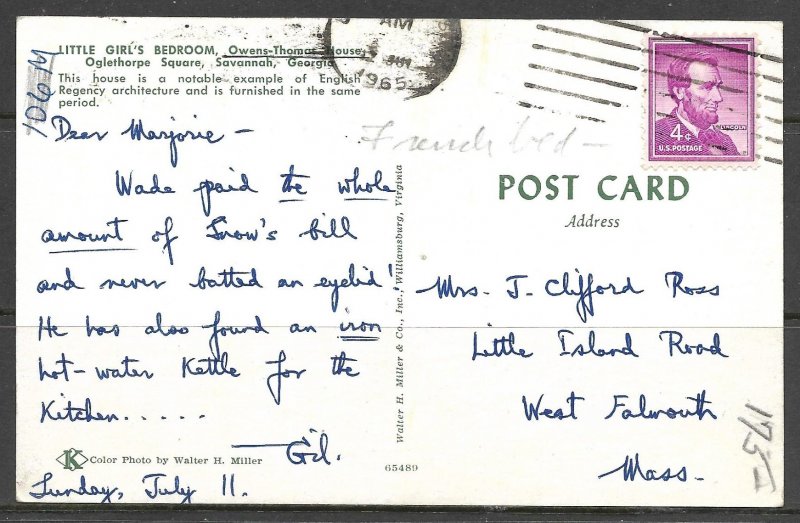 LITTLE GIRL'S BEDROOM, Owens-Thomas House,
Oglethorpe Square, Savannah, Georgia
This house is a notable example of English
Regency architecture and is furnished in the same
period.
106 M
AM
1965
4¢
LINCOLN
U.S. POSTAGE
French bed —
Dear Marjorie —
Wade paid the whole
amount of Snow's bill
and never batted an eyelid!
He has also found an iron
hot-water Kettle for the
Kitchen.....
— Gil.
Sunday, July 11.
K Color Photo by Walter H. Miller
Walter H. Miller & Co., Inc., Williamsburg, Virginia
65489
POST CARD
Address
Mrs. J. Clifford Ross
Little Island Road
West Falmouth
Mass.